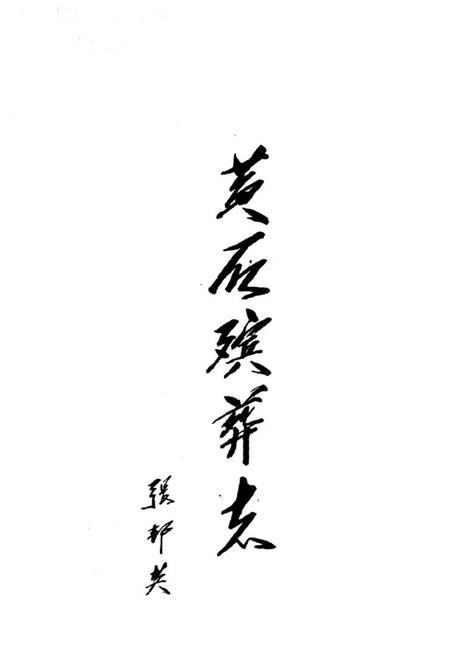 黄石殡葬志
張邦英